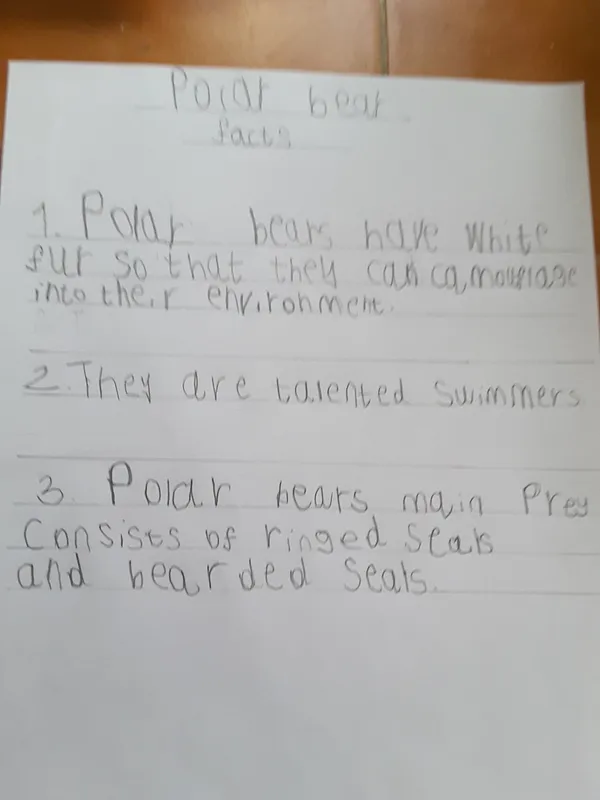 Polar bear
facts
1. Polar bears have white
fur so that they can camouflage
into their environment.
2. They are talented swimmers
3. Polar bears main prey
consists of ringed seals
and bearded seals.